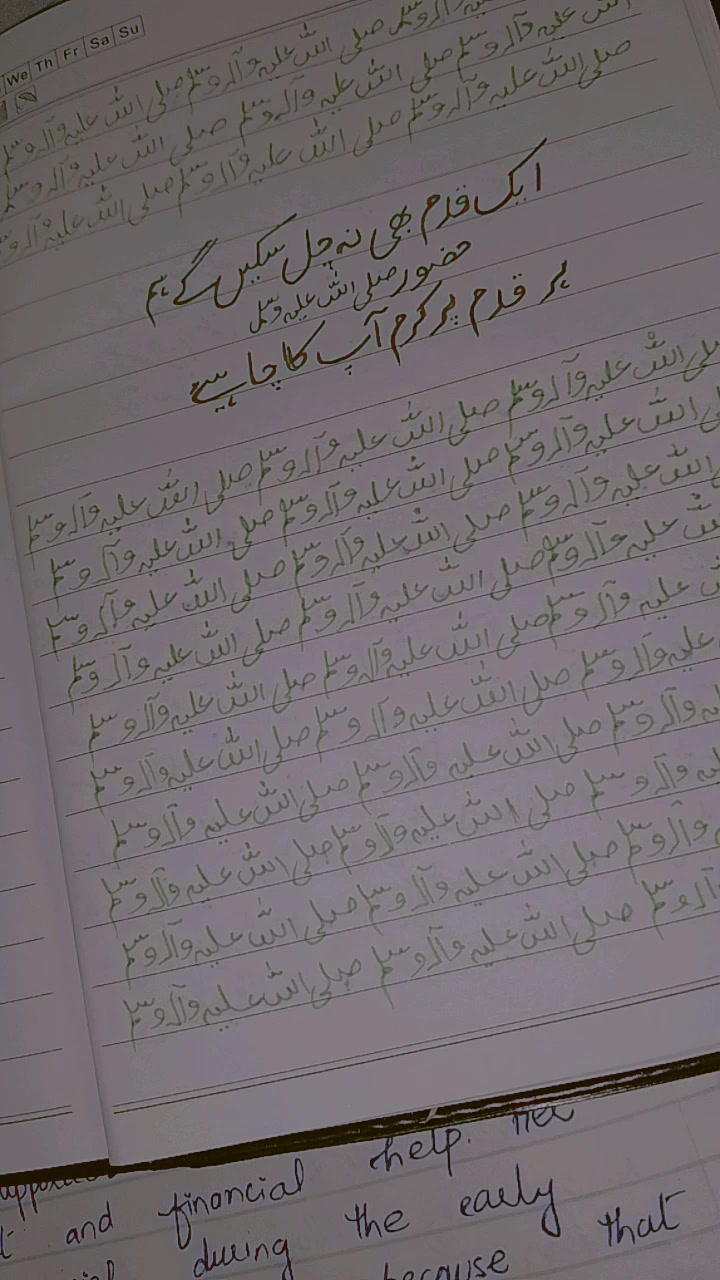 We Th Fr Sa Su
صلی اللہ علیہ وآلہ وسلم صلی
صلی اللہ علیہ وآلہ وسلم صلی اللہ علیہ وآلہ وسلم صلی اللہ علیہ وآلہ وسلم
صلی اللہ علیہ وآلہ وسلم صلی اللہ علیہ وآلہ وسلم صلی اللہ علیہ وآلہ وسلم
ایک قدم بھی نہ چل سکیں گے ہم
حضور صلی اللہ علیہ وسلم
ہر قدم پر کرم آپ کا چاہیے
صلی اللہ علیہ وآلہ وسلم صلی اللہ علیہ وآلہ وسلم صلی اللہ علیہ وآلہ وسلم
اللہ علیہ وآلہ وسلم صلی اللہ علیہ وآلہ وسلم صلی اللہ علیہ وآلہ وسلم
اللہ علیہ وآلہ وسلم صلی اللہ علیہ وآلہ وسلم صلی اللہ علیہ وآلہ وسلم
اللہ علیہ وآلہ وسلم صلی اللہ علیہ وآلہ وسلم صلی اللہ علیہ وآلہ وسلم
علیہ وآلہ وسلم صلی اللہ علیہ وآلہ وسلم صلی اللہ علیہ وآلہ وسلم
علیہ وآلہ وسلم صلی اللہ علیہ وآلہ وسلم صلی اللہ علیہ وآلہ وسلم
وآلہ وسلم صلی اللہ علیہ وآلہ وسلم صلی اللہ علیہ وآلہ وسلم
وآلہ وسلم صلی اللہ علیہ وآلہ وسلم صلی اللہ علیہ وآلہ وسلم
وآلہ وسلم صلی اللہ علیہ وآلہ وسلم صلی اللہ علیہ وآلہ وسلم
وآلہ وسلم صلی اللہ علیہ وآلہ وسلم صلی اللہ علیہ وآلہ وسلم
and financial help.
during the early
because that